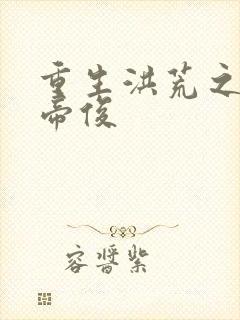 重生洪荒之
帝俊
容酱紫